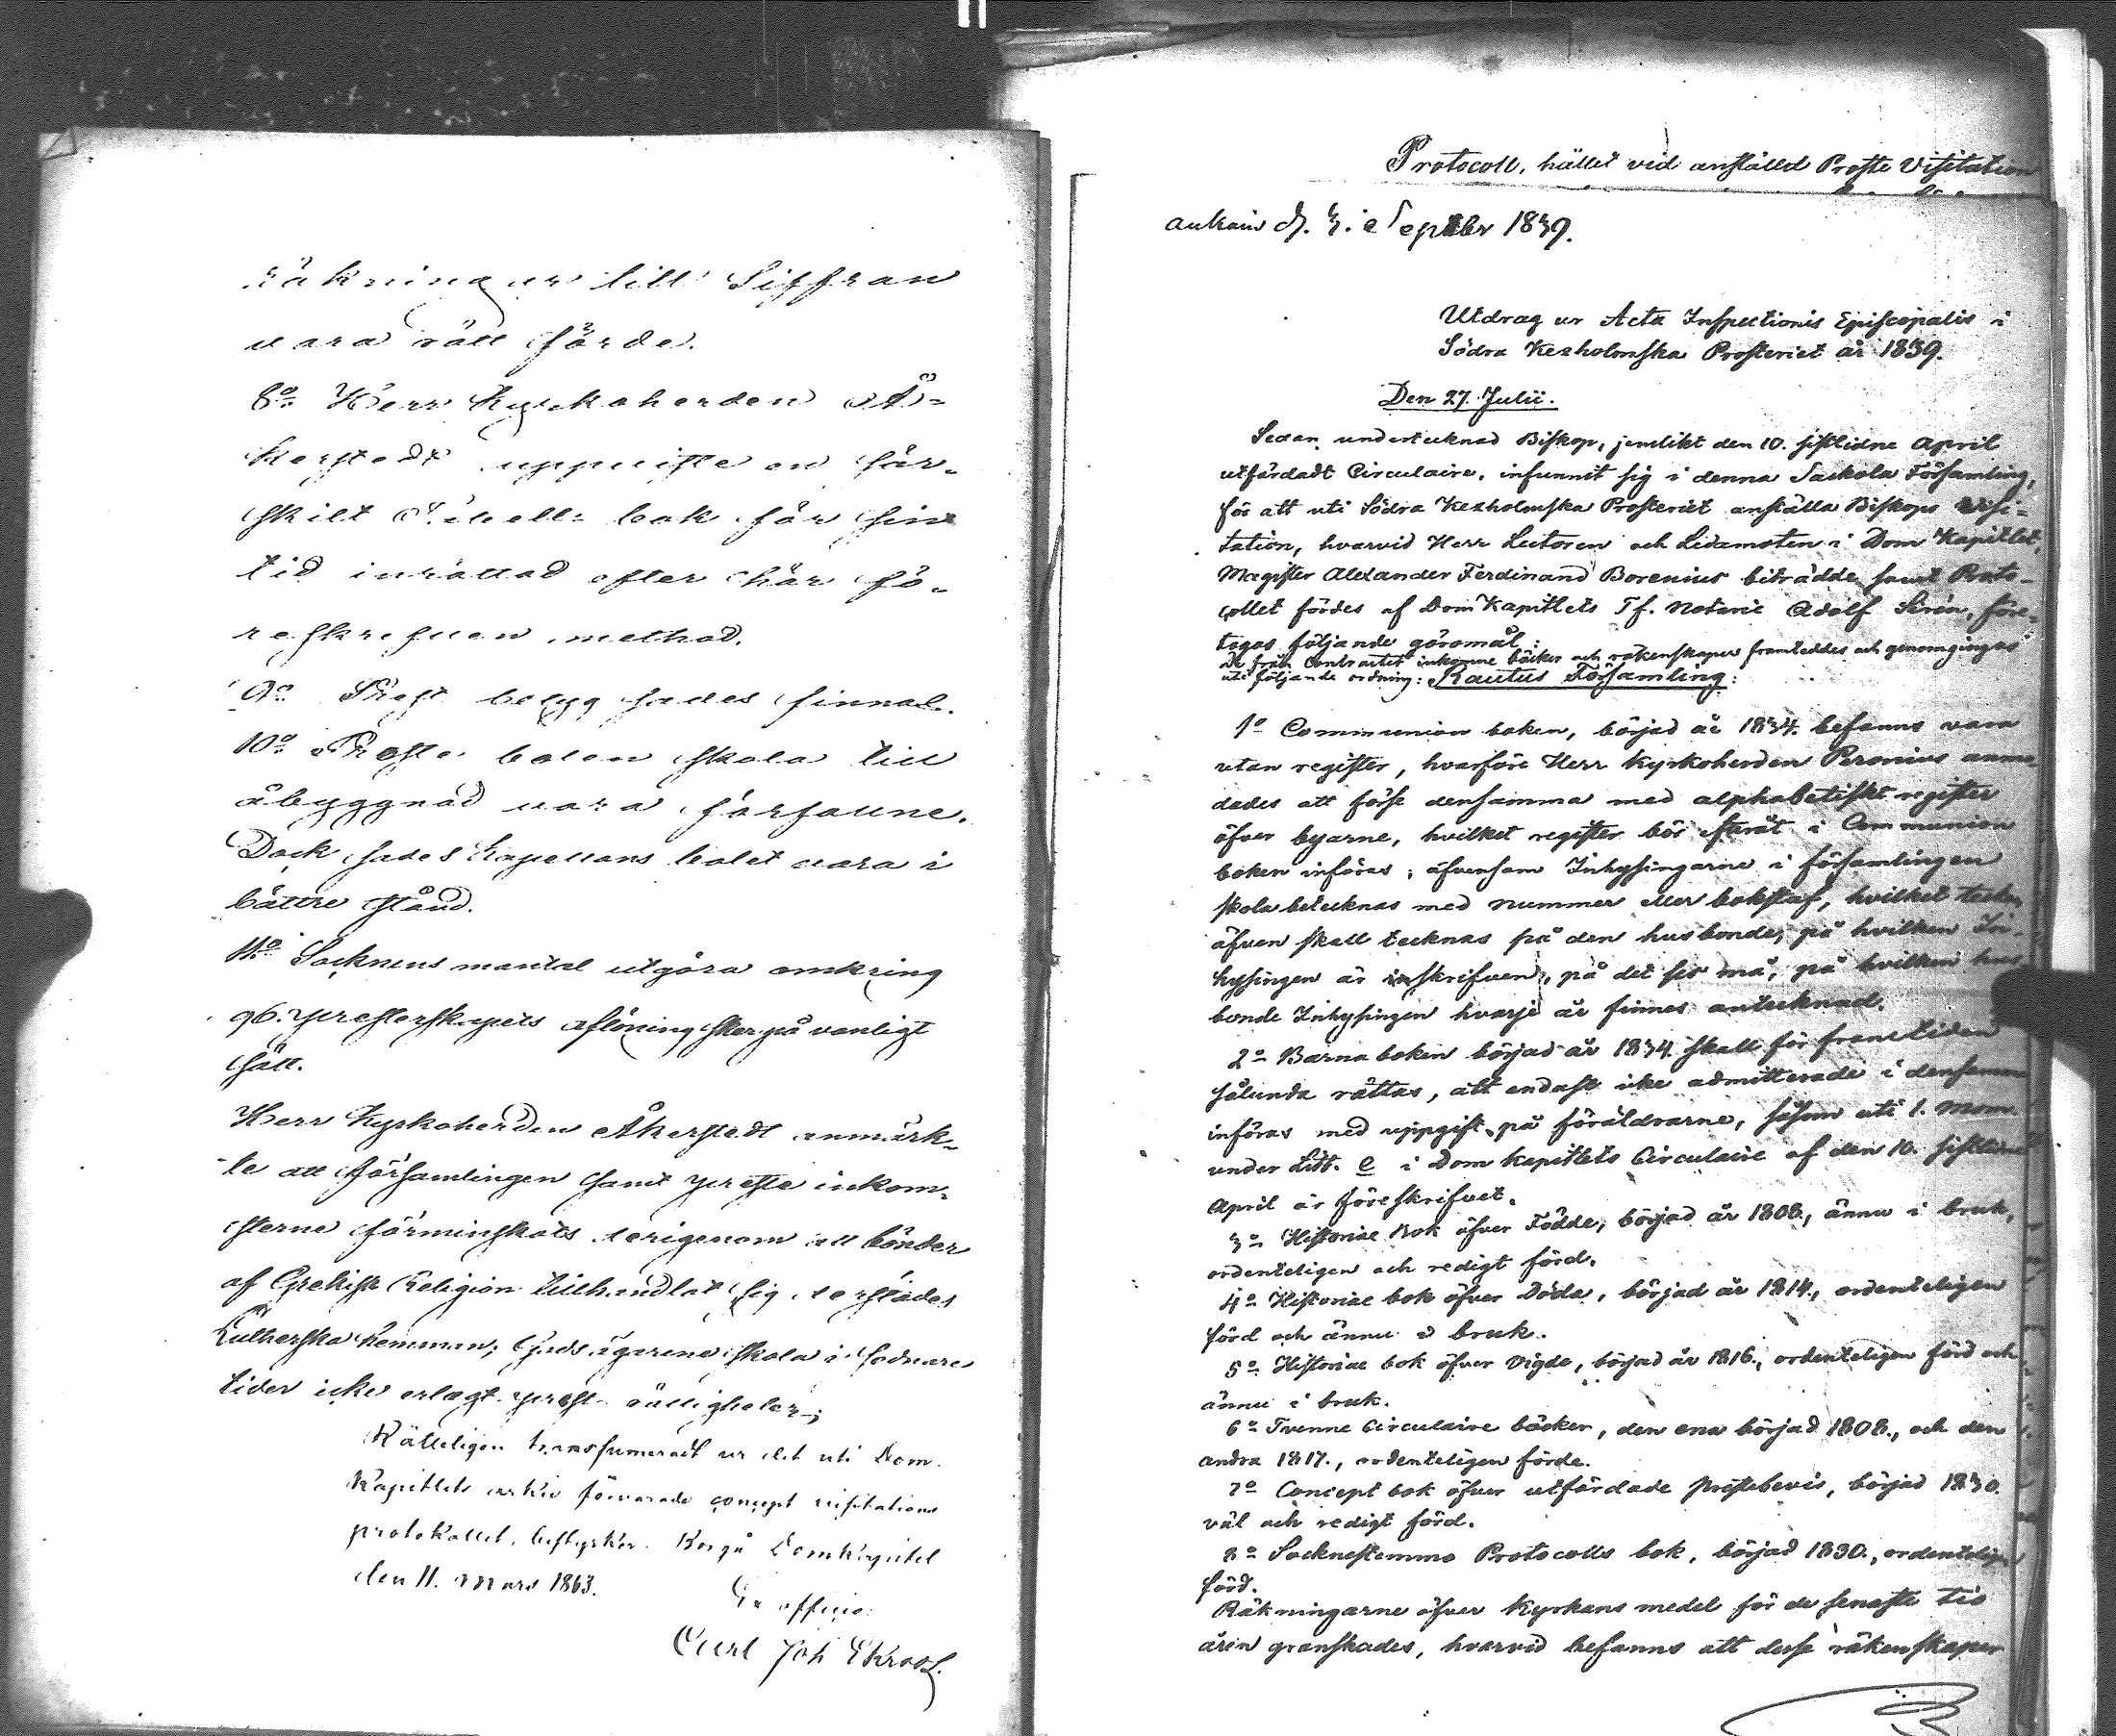 räkningar till Siffran
vara rätt förde.
8:o Herr Kyrkoherden Å-
kerstedt uppviste en sär-
skilt bok för sin
tid inrättad efter här fö-
reskrefven method.
9:o Prest betyg sades finnas.
10:o Preste bolen skola till
åbyggnad vara förfallne.
Dock sades Kapellans bolet vara i
bättre stånd.
11:o Socknens mantal utgöra omkring
96. presterskapets aflöning sker på vanligt
sätt.
Herr Kyrkoherden Åkerstedt anmärk-
te att församlingen samt preste inkom-
sterne förminskats derigenom att bönder
af Grekisk Religion tillhandlat sig derstädes
Lutherska hemman, egarene skola i sednare
tider icke erlagt prest-rättigheter;
Rätteligen transsumeradt ur det uti Dom-
Kapitlets arkiv förvarade concept visitations
protokollet, bestyrker. Borgå Domkapitel
den 11. Mars 1863.
Ex officio:
Carl Joh Ekroos.
Protocoll, hållet vid anstäld Proste Visitation
d. 3. Septbr 1839.
Utdrag ur Acta Inspectionis Episcopalis i
Södra Kexholmska Prosteriet år 1839.
Den 27. Julii.
Sedan undertecknad Biskop, jemlikt den 10. sistlidne April
utfärdadt Circulaire, infunnit sig i denna Sackola Församling,
för att uti Södra Kexholmska Prosteriet anställa Biskops Visi-
tation, hvarvid Herr Lectoren och Ledamoten i Dom Kapitlet,
Magister Alexander Ferdinand Borenius biträdde samt Proto-
collet fördes af Dom Kapitlets Tf. Notarie Adolf Sirén, före-
togos följande göromål:
De från Contractet inkomne böcker och räkenskaper framteddes och genomgingos
uti följande ordning: Rautus Församling:
1:o Communion boken, börjad år 1834. befanns vara
utan register, hvarföre Herr Kyrkoherden Peronius anmo-
dades att förse densamma med alphabetiskt register
öfver byarne, hvilket register bör främst i Communion
boken införas; äfvensom Inhysingarne i församlingen
skola betecknas med nummer eller bokstaf, hvilket tecken
äfven skall tecknas på den husbonde, på hvilken In-
hysingen är inskrifven, på det ses må, på hvilken hus-
bonde Inhysingen hvarje år finnes antecknad.
2:o Barnaboken börjad år 1834. skall för framtiden
sålunda rättas, att endast icke admitterade i densamma
införas med uppgift på föräldrarne, såsom uti 1. mom.
under Litt. e i Dom Kapitlets Circulaire af den 10. sistlidne
April är föreskrifvet.
3:o Historiæ Bok öfver Födde, börjad år 1808, ännu i bruk,
ordenteligen och redigt förd.
4:o Historiæ bok öfver Döde, börjad år 1814., ordenteligen
förd och ännu i bruk.
5:o Historiæ bok öfver Vigde, börjad år 1816., ordenteligen förd och
ännu i bruk.
6:o Tvenne Circulaire böcker, den ena börjad 1808., och den
andra 1817., ordenteligen förde.
7:o Concept bok öfver utfärdade prestebevis, börjad 1830.
väl och redigt förd.
8:o Sockenstemmo Protocolls bok, börjad 1830., ordenteligen
förd.
Räkningarne öfver Kyrkans medel för de senaste tio
åren granskades, hvarvid befanns att desse räkenskaper